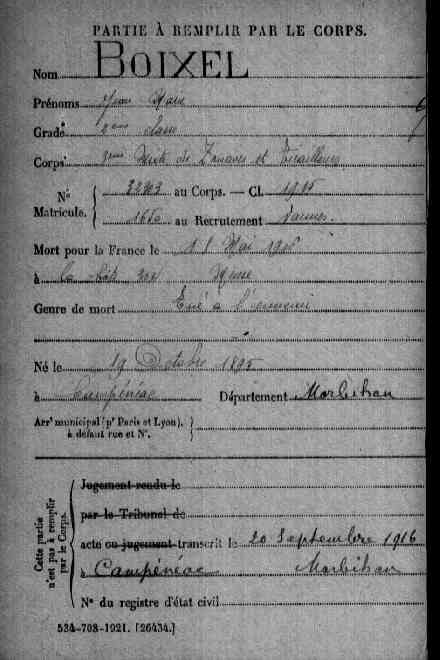 PARTIE À REMPLIR PAR LE CORPS.
Nom BOIXEL
Prénoms Jean Marie
Grade 2ème classe
Corps 3ème Mixte de Zouaves et Tirailleurs
N° Matricule. { au Corps. — Cl. 1915
au Recrutement Vannes.
Mort pour la France le Mai 1916
à la Côte Meuse
Genre de mort Tué à l'ennemi
Né le 19 Octobre 1895
à Campénéac Département Morbihan
Arrt municipal (pr Paris et Lyon),
à défaut rue et N°.
Cette partie n'est pas à remplir par le Corps.
Jugement rendu le
par le Tribunal de
acte ou jugement transcrit le 20 Septembre 1916
à Campénéac Morbihan
N° du registre d'état civil
534-708-1921. [26434.]